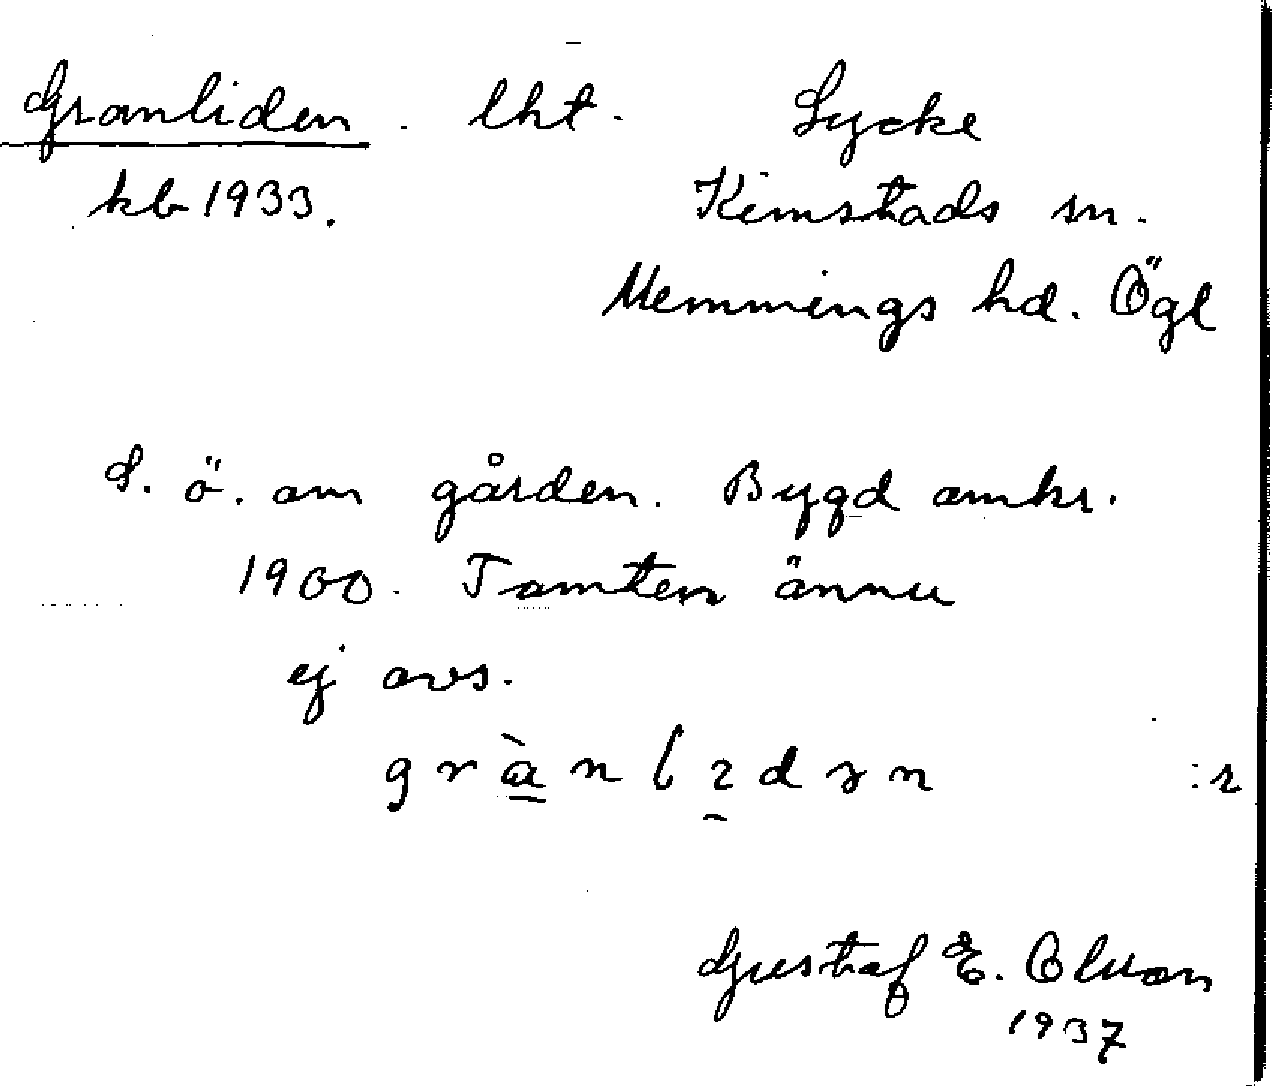 Granliden. lht. Lycke
kb 1933. Kimstads sn.
Memmings hd. Ögl
S. ö. om gården. Bygd omkr.
1900. Tomten ännu
ej avs.
Gustaf E. Olsson
1937